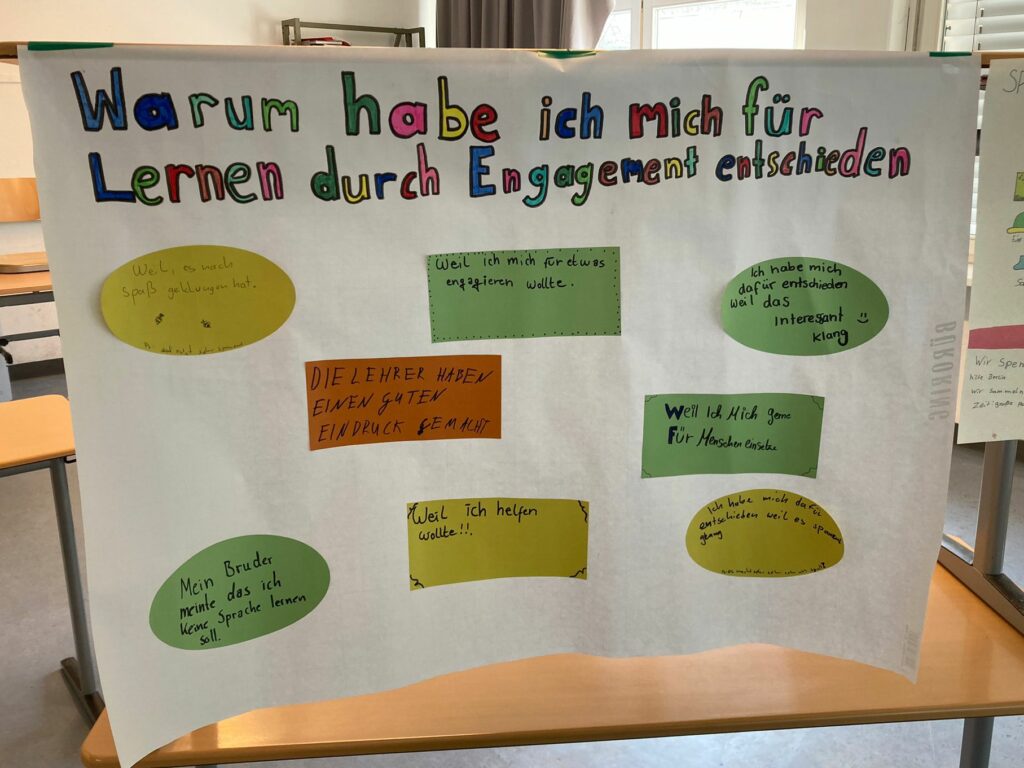 Warum habe ich mich für
Lernen durch Engagement entschieden
Weil, es nach
Spaß geklungen hat.
Weil ich mich für etwas
engagieren wollte.
Ich habe mich
dafür entschieden
weil das
Interessant
klang
DIE LEHRER HABEN
EINEN GUTEN
EINDRUCK GEMACHT
Weil Ich Mich gerne
Für Menschen einsetze
Weil ich helfen
wollte!!,
Ich habe mich dafür
entschieden weil es spannend
Mein Bruder
meinte das ich
keine Sprache lernen
soll.
BÜRORING
Wir